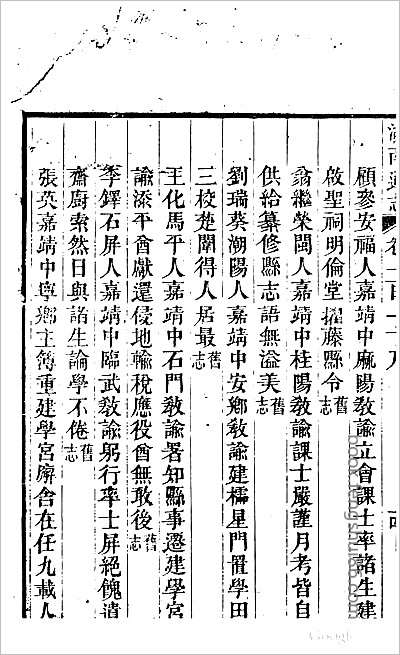 湖南通志 卷一百十九
顧㕘安福人嘉靖中麻陽敎諭立會課士率諸生建
啟聖祠明倫堂擢藤縣令舊志
翁繼榮閩人嘉靖中桂陽敎諭課士嚴謹月考皆自
供給纂修縣志語無溢美舊志
劉瑞葵潮陽人嘉靖中安鄉敎諭建櫺星門置學田
三校楚闈得人居最舊志
王化馬平人嘉靖中石門敎諭署知縣事遷建學宮
諭添平酋獻還侵地輸稅應役酋無敢後舊志
李鐸石屏人嘉靖中臨武敎諭躬行率士屏絕餽遺
齋廚索然日與諸生論學不倦舊志
張英嘉靖中寧鄉主簿重建學宮廨舍在任九載人